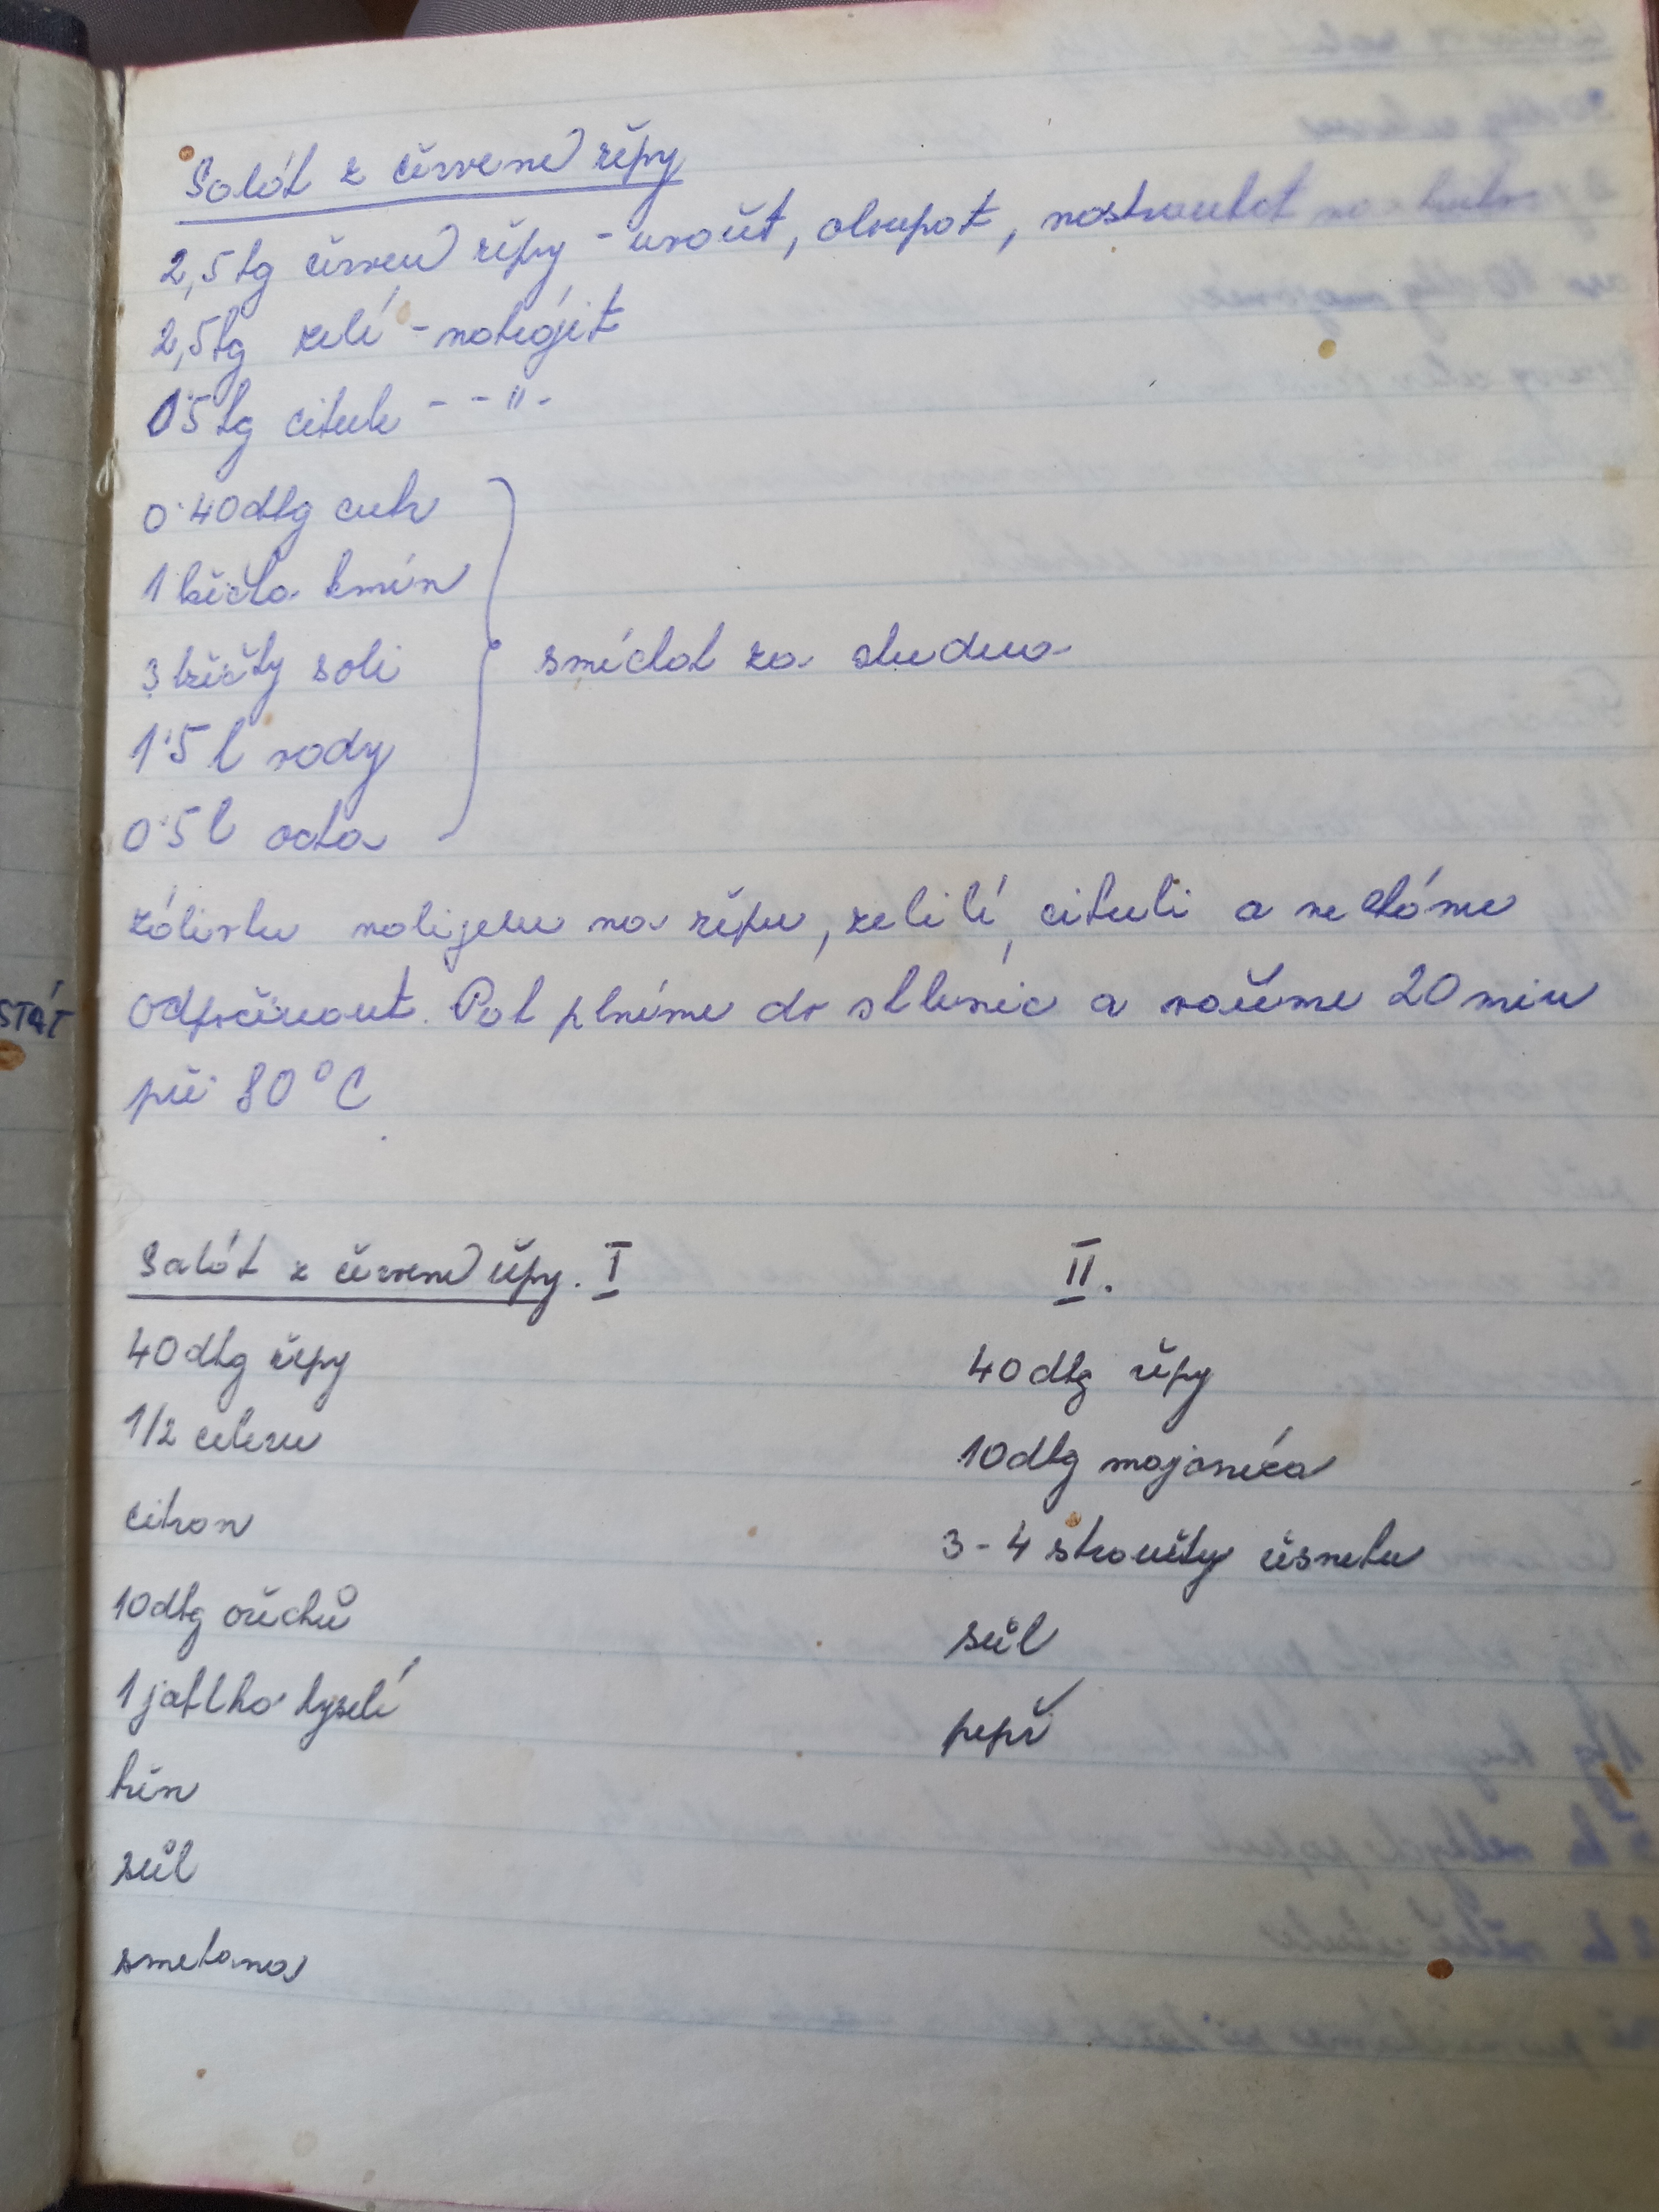 Salát z červené řépy
2,5 kg červené řépy - uvařit, oloupat, nastrouhat na nudle
2,5 kg zelí - nakrájet
0·5 kg cibule - - " -
0·40 dkg cukr
1 lžička kmín
3 lžičky soli
1·5 l vody
0·5 l octa
smíchat za studena
zálivku nalijeme na řépu, zelilí, cibuli a necháme
STÁT
odpočinout. Pak plníme do sklenic a vaříme 20 min
při 80°C
Salát z červené řépy. I
40 dkg řépy
1/2 celeru
citron
10 dkg ořechů
1 jablko kyselé
křen
sůl
smetana
II.
40 dkg řépy
10 dkg majonéza
3-4 stroužky česneku
sůl
pepř